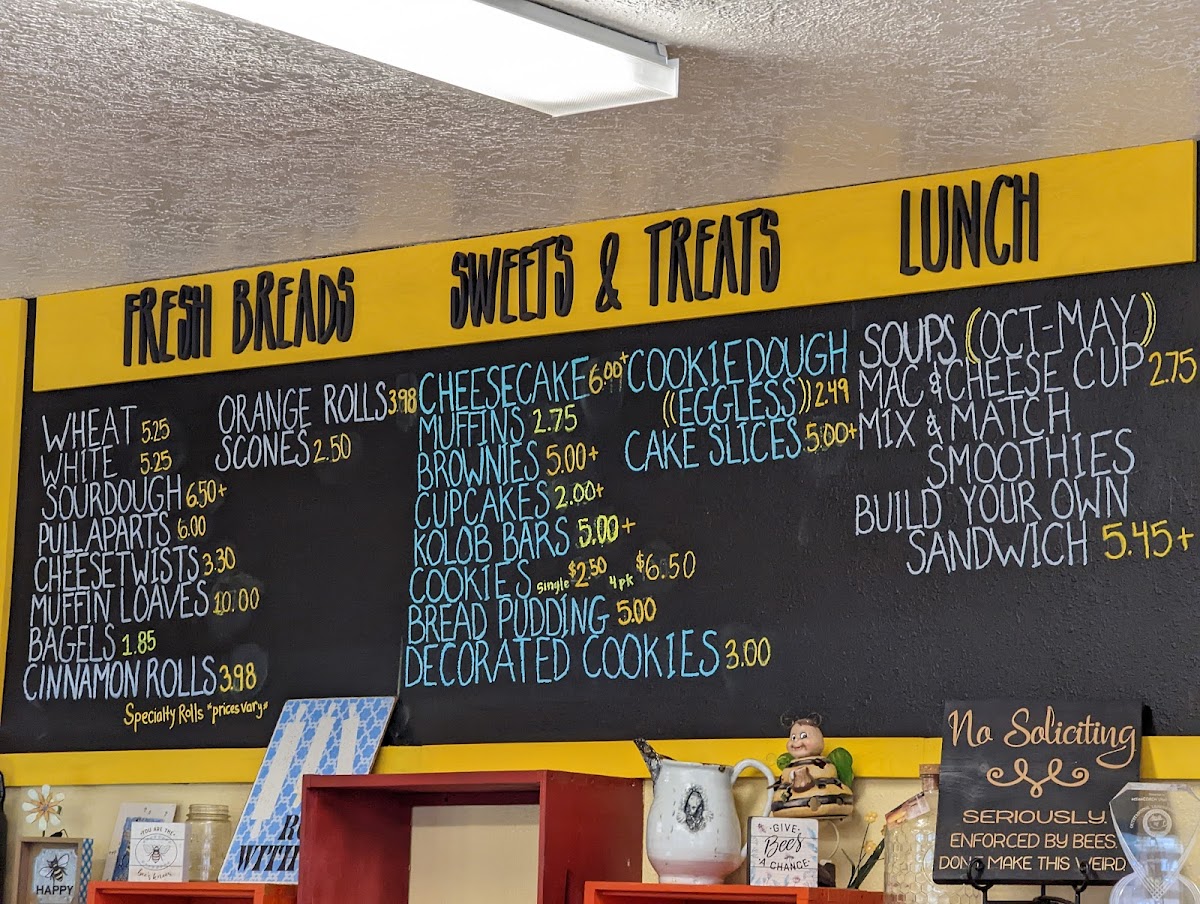 FRESH BREADS
WHEAT 5.25
WHITE 5.25
SOURDOUGH 6.50+
PULLAPARTS 6.00
CHEESETWISTS 3.30
MUFFIN LOAVES 10.00
BAGELS 1.85
CINNAMON ROLLS 3.98
Specialty Rolls "prices vary"
ORANGE ROLLS 3.98
SCONES 2.50
SWEETS & TREATS
CHEESECAKE 6.00+
MUFFINS 2.75
BROWNIES 5.00+
CUPCAKES 2.00+
KOLOB BARS 5.00+
COOKIES single $2.50 4pk $6.50
BREAD PUDDING 5.00
DECORATED COOKIES 3.00
COOKIEDOUGH
((EGGLESS)) 2.49
CAKE SLICES 5.00+
LUNCH
SOUPS (OCT-MAY)
MAC & CHEESE CUP 2.75
MIX & MATCH
SMOOTHIES
BUILD YOUR OWN
SANDWICH 5.45+
HAPPY
YOU ARE THE
bee's knees
WITH
GIVE
Bees
A CHANCE
No Soliciting
SERIOUSLY.
ENFORCED BY BEES.
DON'T MAKE THIS WEIRD.